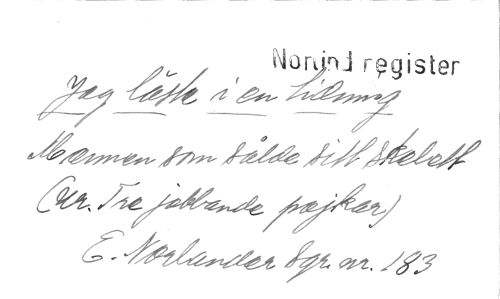 Norlind register
Jag läste i en tidning
Mannen som sålde sitt skelett
(ur. Tre jobbande pojkar)
E. Norlander Sgr. nr. 183